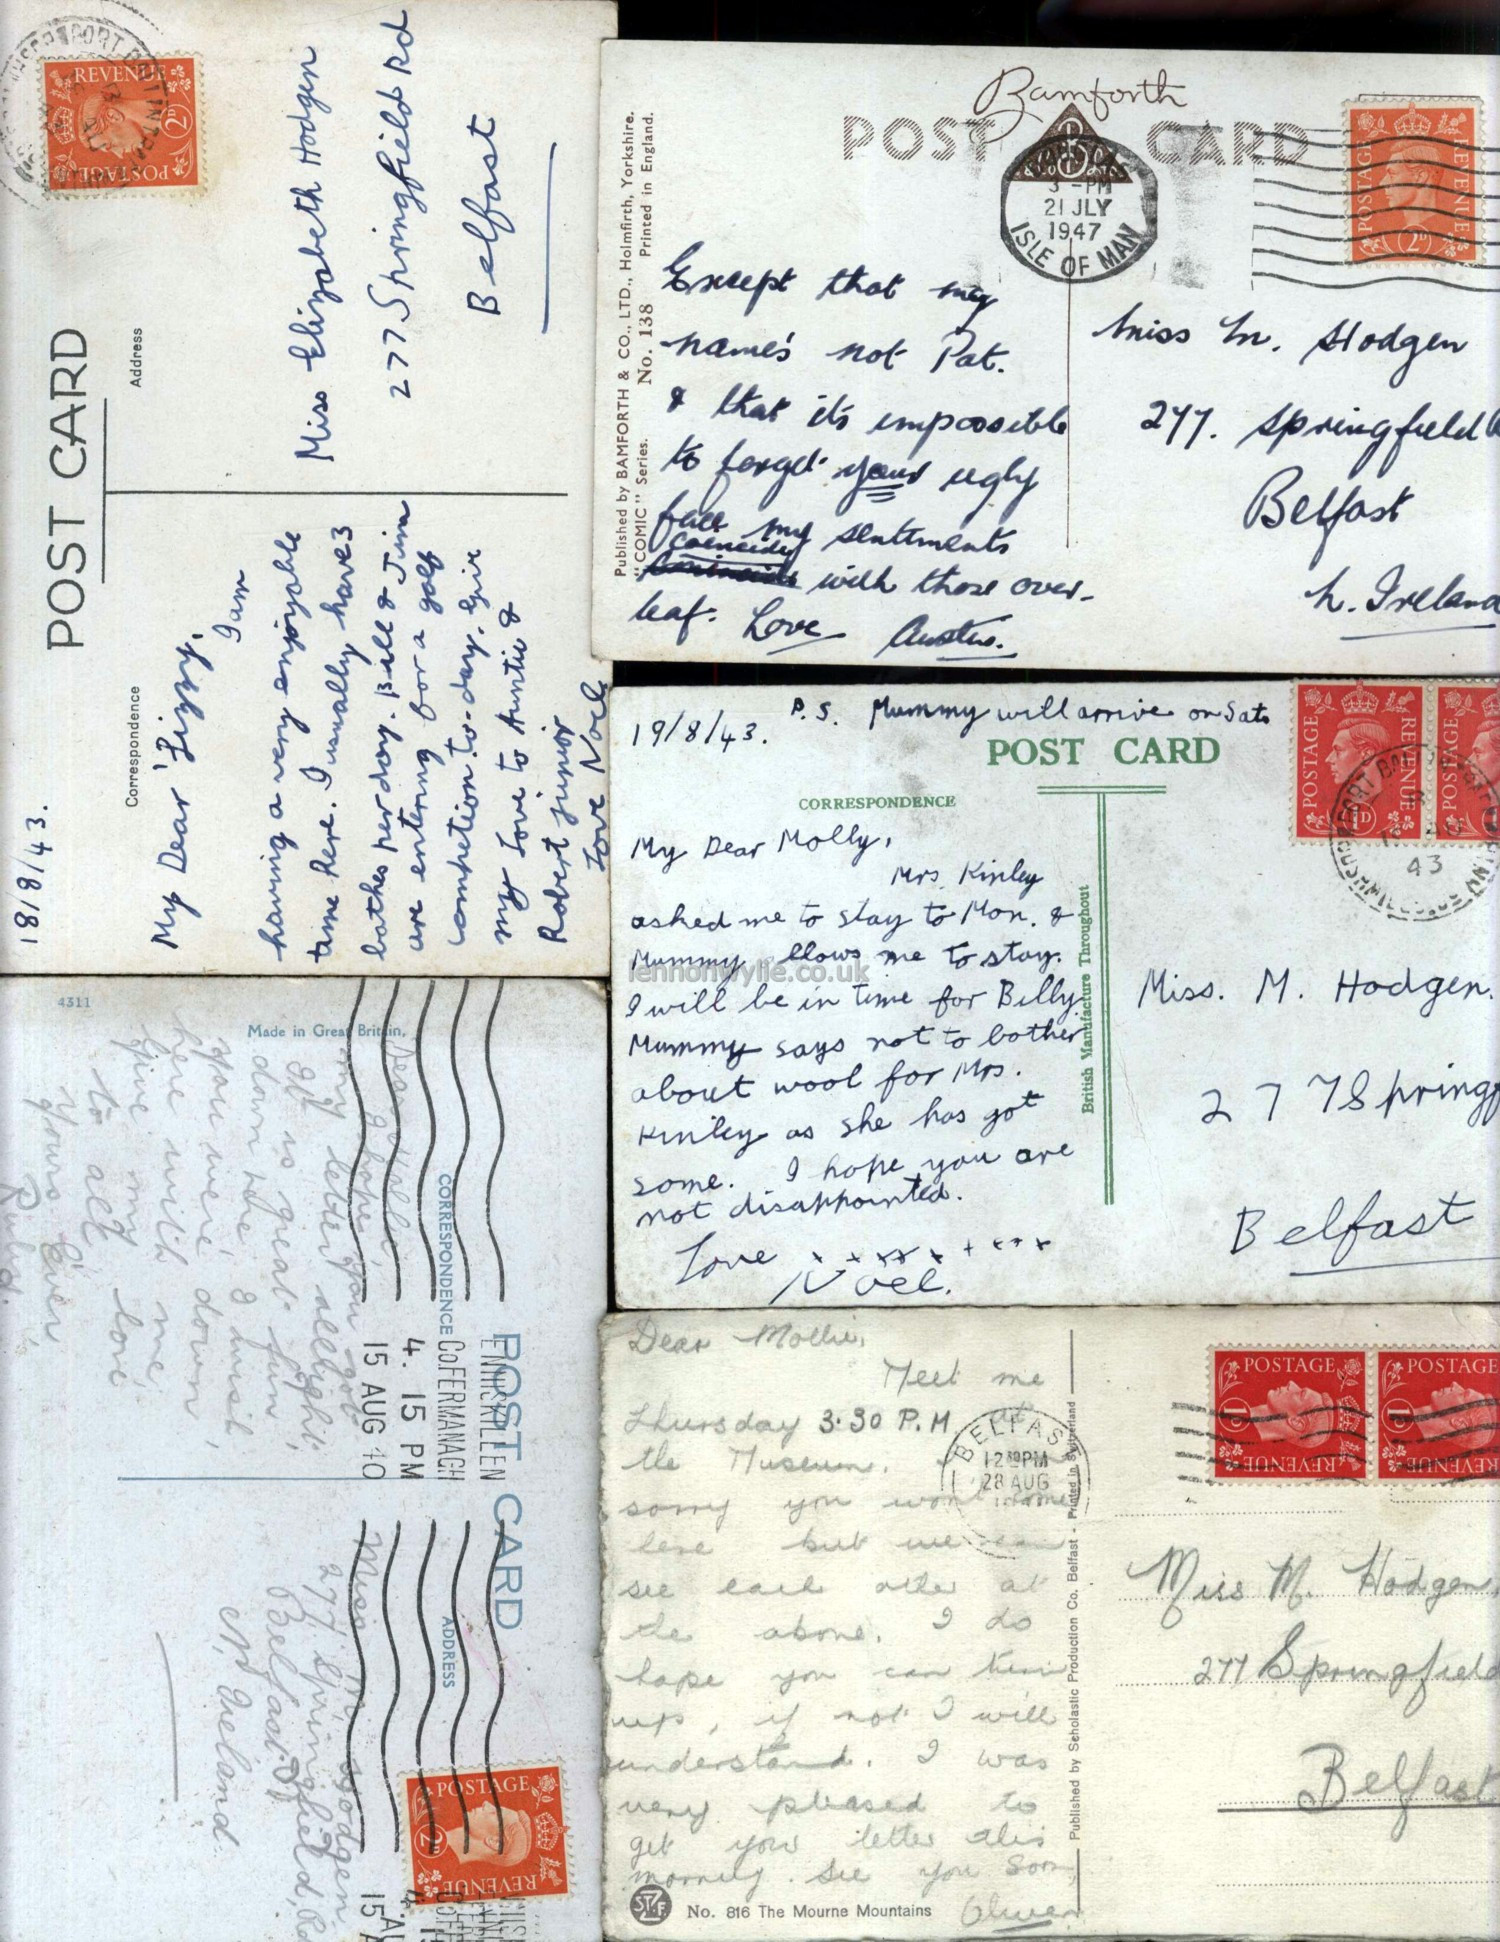 18/8/43.
POST CARD
Correspondence
Address
My Dear 'Lizzy,
I am
having a very enjoyable
time here. I usually have 3
bathes per day. Bill & Jim
are entering for a golf
competion to-day. Give
my love to Auntie &
Robert junior
Love Noel
Miss Elizabeth Hodgen
277 Springfield Rd
Belfast
REVENUE
2D
POSTAGE
Bamforth
POST CARD
Published by BAMFORTH & CO., LTD., Holmfirth, Yorkshire.
"COMIC" Series. No. 138 Printed in England.
3 - PM
21 JLY
1947
ISLE OF MAN
POSTAGE
REVENUE
2D
Except that my
name's not Pat.
& that it's impossible
to forget your ugly
face my sentiments
coincide
with those over-
leaf. Love Austin.
Miss M. Hodgen
277. Springfield
Belfast
N. Ireland
19/8/43.
P.S. Mummy will arrive on Sat
POST CARD
CORRESPONDENCE
British Manufacture Throughout
My Dear Molly,
Mrs. Kinley
asked me to stay to Mon. &
Mummy llows me to stay.
I will be in time for Billy
Mummy says not to bother
about wool for Mrs.
Kinley as she has got
some. I hope you are
not disappointed.
Love x x x x x x x x x
Noel.
lennonwylie.co.uk
POSTAGE
REVENUE
1D
POSTAGE
43
Miss. M. Hodgen.
277 Springf
Belfast
4311
Made in Great Britain.
POST CARD
CORRESPONDENCE
ADDRESS
ENNISKILLEN
Co FERMANAGH
4. 15 PM
15 AUG 40
Dear Mollie,
I hope you got
my letter allright,
It is great fun
down here I wish
you were down
here with me,
Give my love
to all
Yours Ever
Ruby.
Miss M. Hodgen
277 Springfield, Rd
Belfast
N. Ireland.
POSTAGE
2D
REVENUE
Dear Mollie,
Meet me
Thursday 3.30 P.M at
the Museum.
sorry you wont come
here but we can
see each other at
the above. I do
hope you can turn
up, if not I will
understand. I was
very pleased to
get your letter this
morning. See you soon,
Oliver
BELFAST
12 30 PM
28 AUG
Published by Scholastic Production Co. Belfast - Printed in Switzerland
No. 816 The Mourne Mountains
POSTAGE
1D
REVENUE
POSTAGE
1D
REVENUE
Miss M. Hodgen,
277 Springfield
Belfast